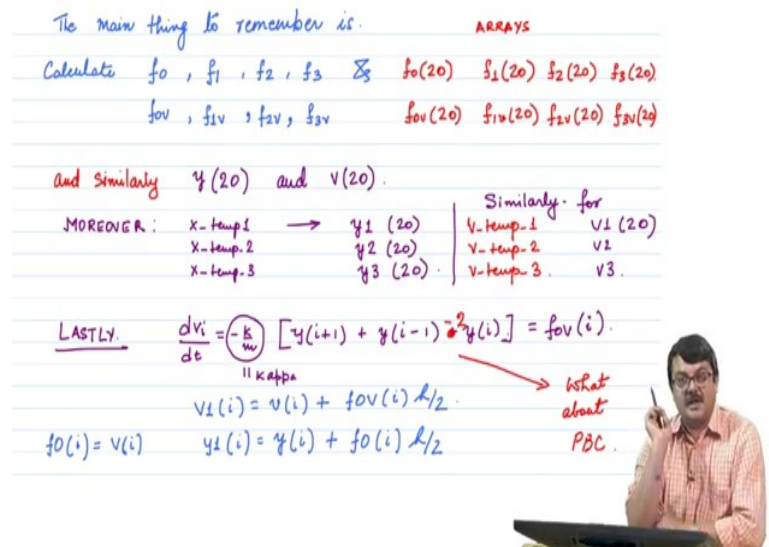 The main thing to remember is.
ARRAYS
Calculate f0 , f1 , f2 , f3 & f0(20) f1(20) f2(20) f3(20)
f0v , f1v , f2v , f3v f0v(20) f1v(20) f2v(20) f3v(20)
and similarly y(20) and v(20).
MOREOVER: x-temp1 → y1 (20)
x-temp.2 y2 (20)
x-temp.3 y3 (20).
Similarly for
v-temp-1 v1 (20)
v-temp-2 v2
v-temp-3. v3.
LASTLY. dvi/dt = -k/m [y(i+1) + y(i-1) -2y(i)] = f0v(i).
11 kappa
v1(i) = v(i) + f0v(i) h/2.
f0(i) = v(i) y1(i) = y(i) + f0(i) h/2
What
about
PBC.